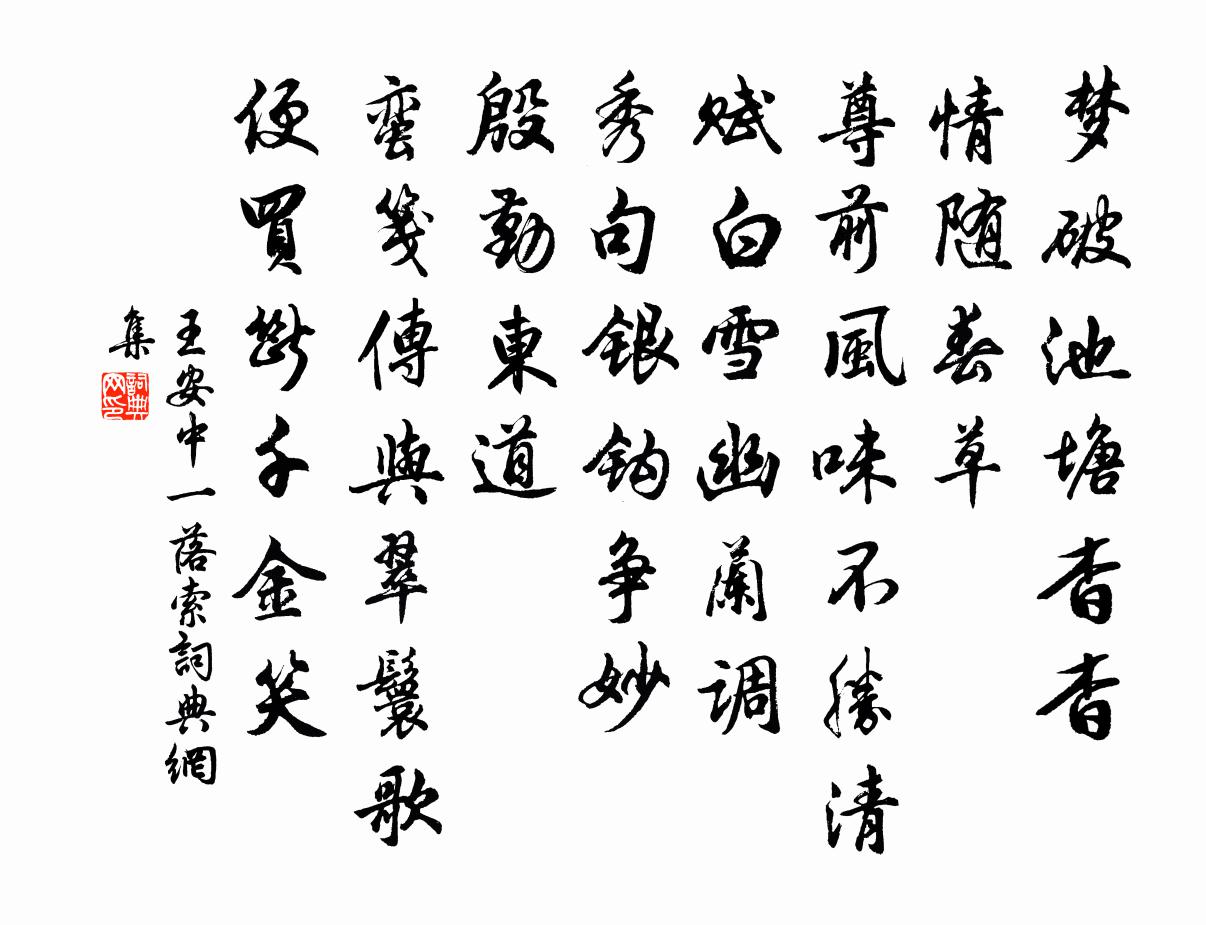 梦破池塘杳杳
情随春草
尊前風味不勝清
赋白雪幽蘭调
秀句銀鈎争妙
殷勤東道
蛮笺傳與翠鬟歌
便買斷千金笑
王安中一落索詞典網
集
詞典网印